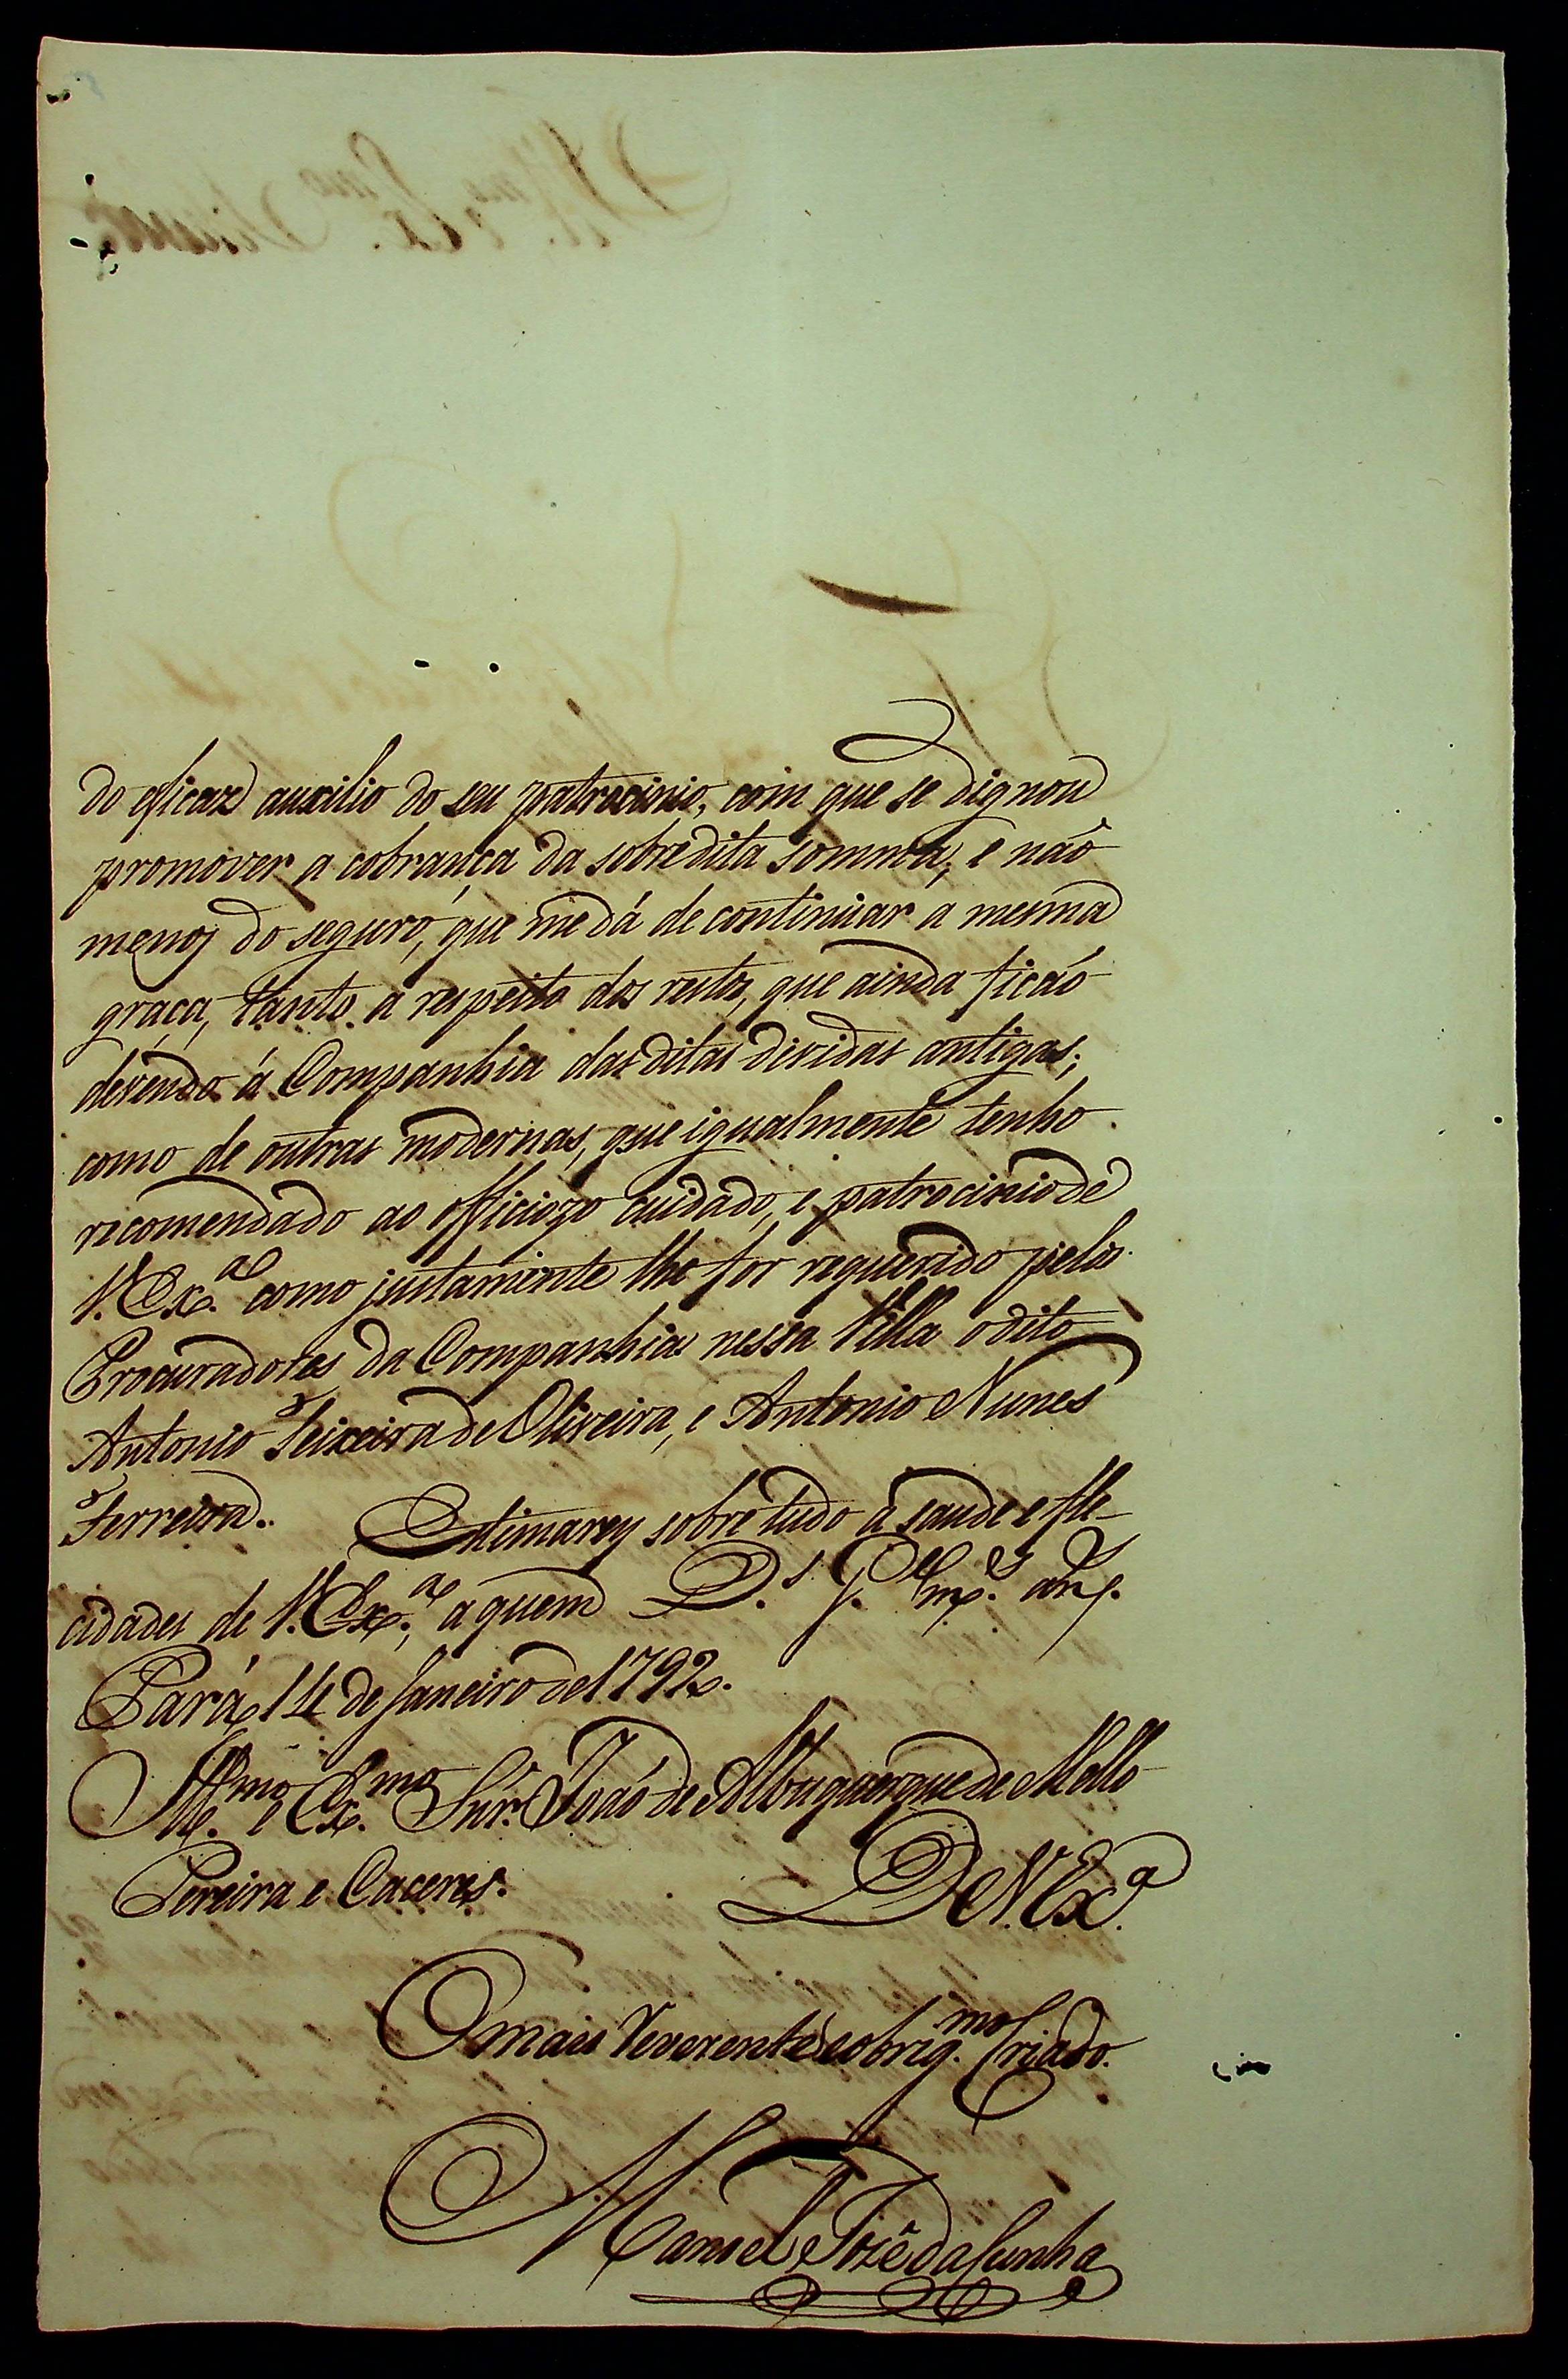 do eficaz auxilio do seu patrocinio, com que se dignou
promover a cobrança da sobredita somma, e naõ
menos do seguro, que me dá de continuar a mesma
graça, tanto a respeito dos restos, que ainda ficaõ
devendo á Companhia das ditas dividas antigas;
como de outras modernas, que igualmente tenho
recomendado ao officiozo cuidado, e patrocinio de
V. Ex.ª como justamente lhe for requerido pelos
Procuradores da Companhia nessa Villa o dito
Antonio Teixeira de Oliveira, e Antonio Nunes
Ferreira. Estimarey sobre tudo a saude e feli-
cidades de V. Ex.ª, a quem D.s g.e m.s an.s
Pará 14 de Janeiro de 1792.
Ill.mo e Ex.mo Snr. Joaõ de Albuquerque de Mello
Pereira e Caceres.
De V. Ex.ª
O mais reverente e obrig.mo Criado.
Manoel Jozê da Cunha